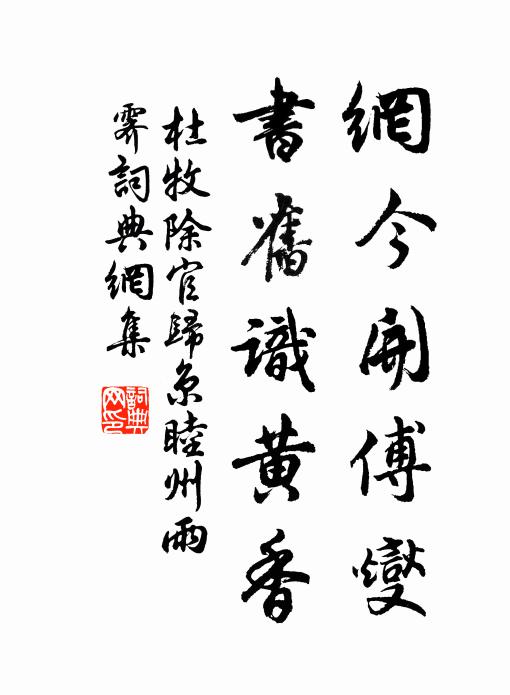 網今開傅燮
書舊識黃香
杜牧除官歸京睦州雨
霽詞典網集
詞典
网印